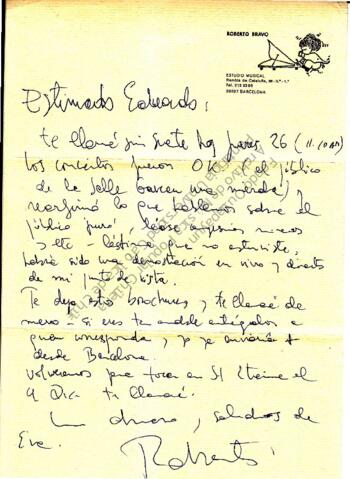 ROBERTO BRAVO
ESTUDIO MUSICAL
Rambla de Cataluña,
BARCELONA
Estimado Eduardo:
te llamé sin suerte hoy jueves 26 (11.10 AM)
Los conciertos fueron O.K. (el público
de la Salle Gaveau una merda)
reafirmó lo que hablamos sobre el
público "puro", léase
y etc - lástima que no estuviste,
habría sido una demostración en vivo y directo
de mi punto de vista.
Te dejo estos brochures, y te llamaré de
nuevo - si eres tan amable entrégalos a
quien corresponda, yo te enviaré +
desde Barcelona.
Volveremos para tocar en St Etienne el
9 Dic. te llamaré.
Un abrazo, saludos de
Eva.
Roberto